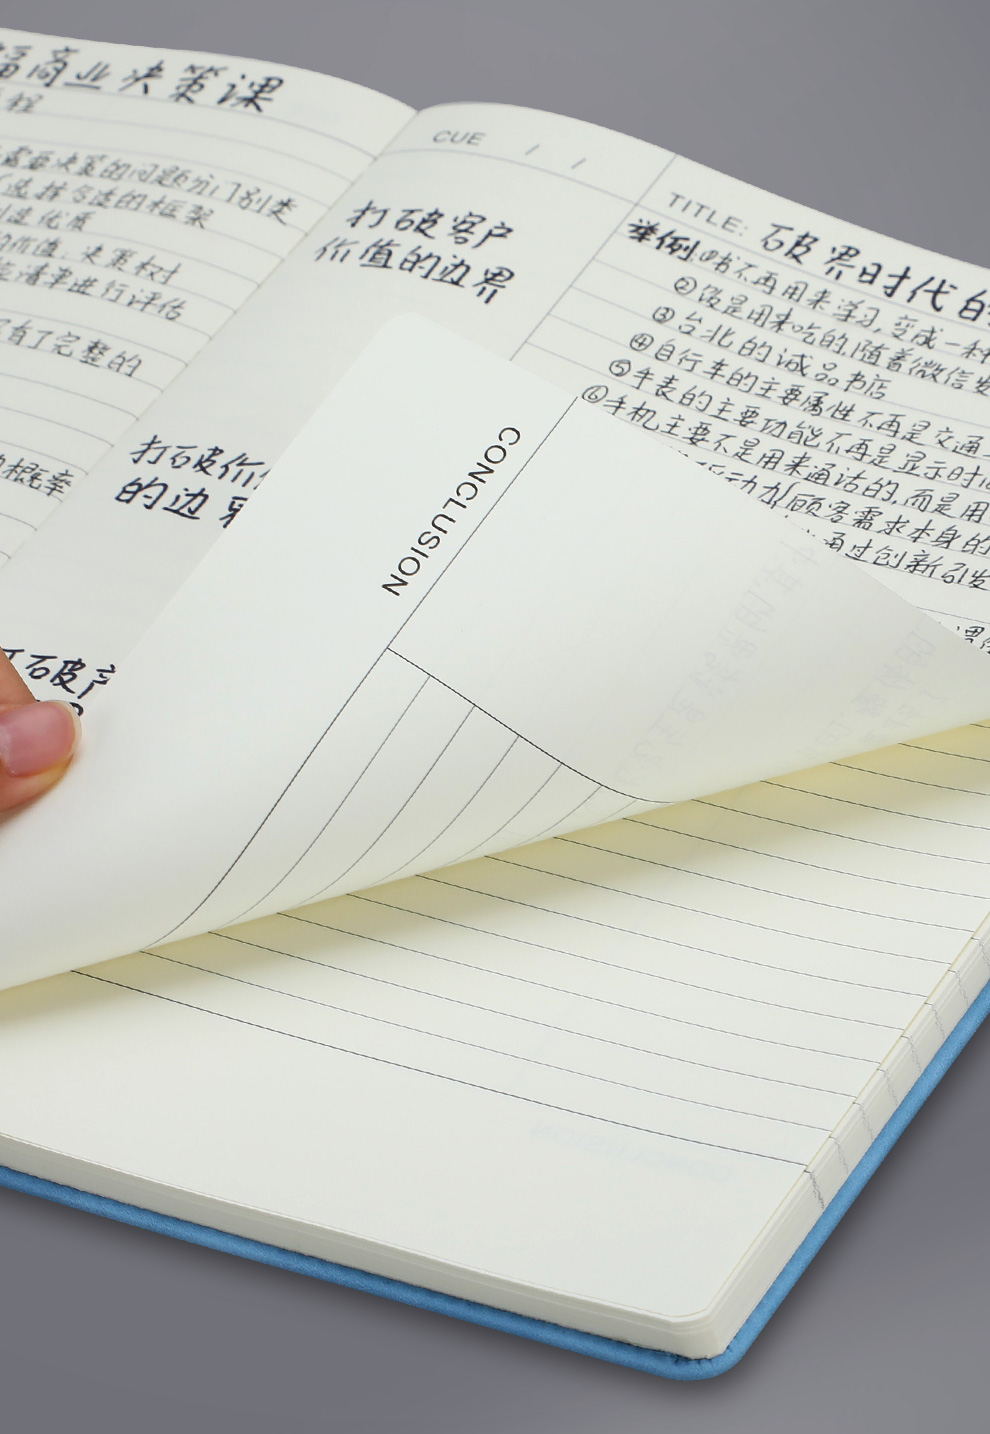 幅商业决策课
程
需要决策的问题分门别类
选择合适的框架
创造优质
的价值、决策树
清单进行评估
有了完整的
的概率
CUE / /
打破客户
价值的边界
打破价
的边界
打破产
TITLE: 破界时代的
举例 ①书不再用来学习,变成一种
②饭是用来吃的,随着微信发
③台北的诚品书店
④自行车的主要属性不再是交通
⑤手表的主要功能不再是显示时间
⑥手机主要不是用来通话的,而是用
动力(顾客需求本身的
通过创新引发
CONCLUSION
CONCLUSION